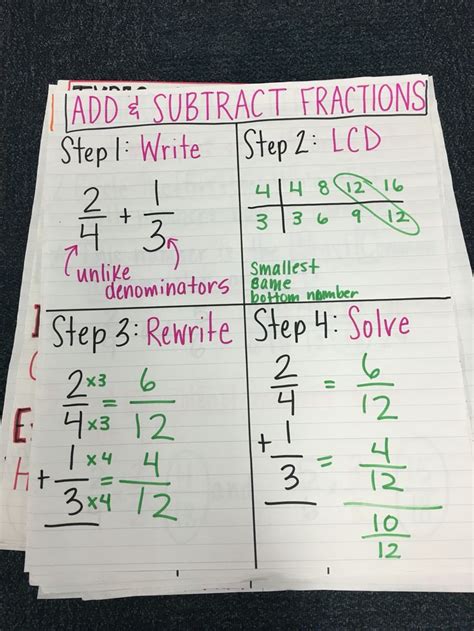 ADD & SUBTRACT FRACTIONS
Step 1: Write
2/4 + 1/3
unlike
denominators
Step 2: LCD
4 | 4 8 12 16
3 | 3 6 9 12
Smallest
same
bottom number
Step 3: Rewrite
2/4 ×3/×3 = 6/12
+ 1/3 ×4/×4 = 4/12
Step 4: Solve
2/4 = 6/12
+ 1/3 = 4/12
10/12